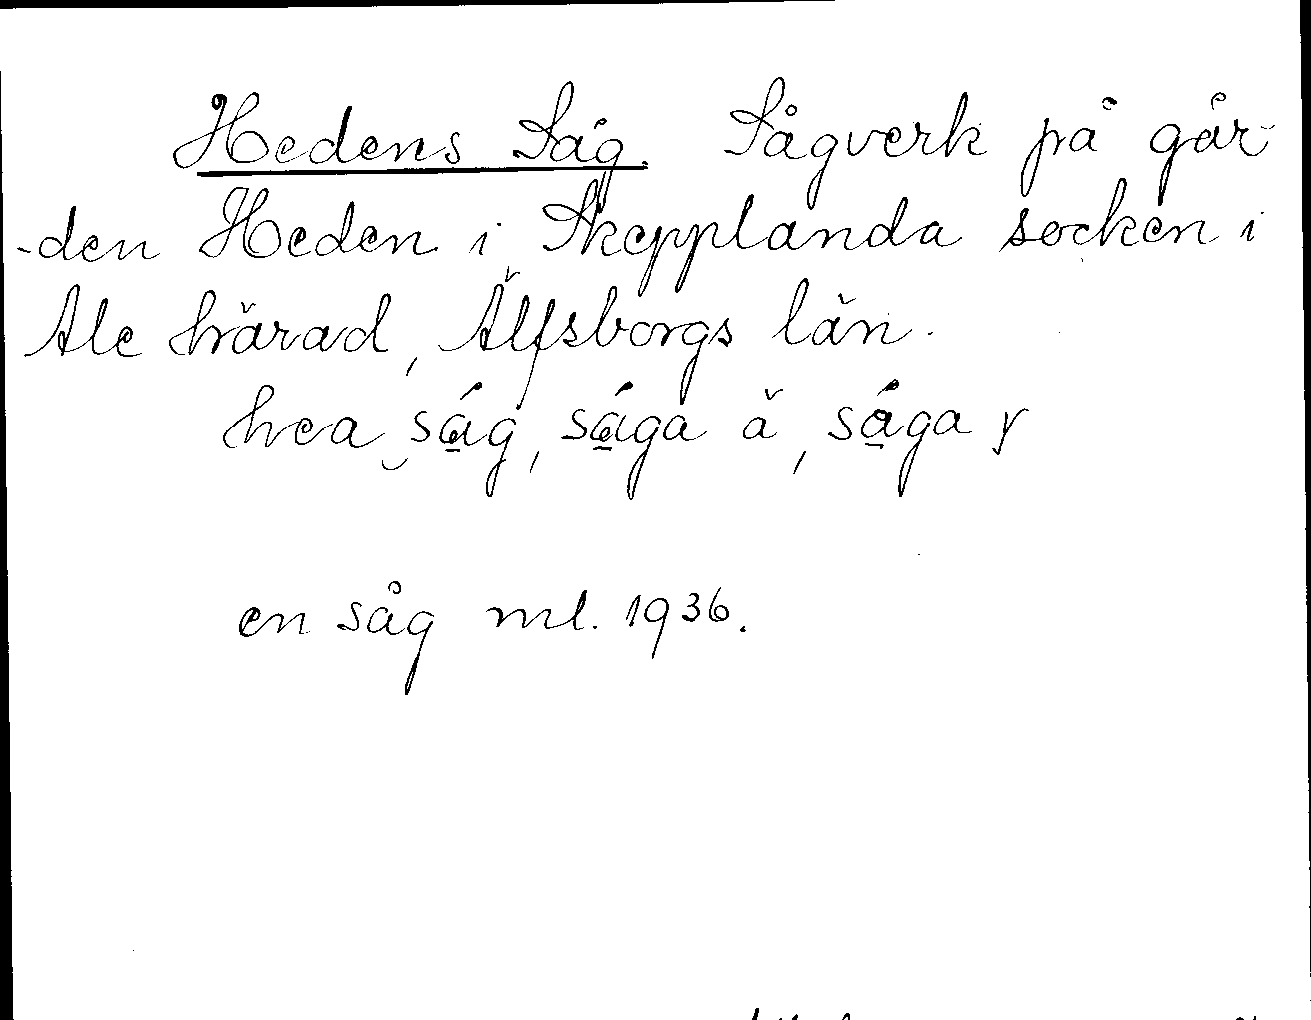 Hedens Såg. Sågverk på går-
-den Heden i Skepplanda socken i
Ale härad, Älfsborgs län.
hea såg, såga ä, såga y
en såg ml. 1936.